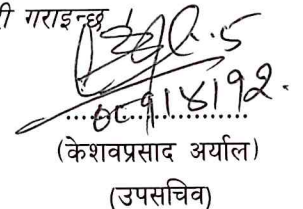 री गराइन्छ
(केशवप्रसाद अर्याल)
(उपसचिव)